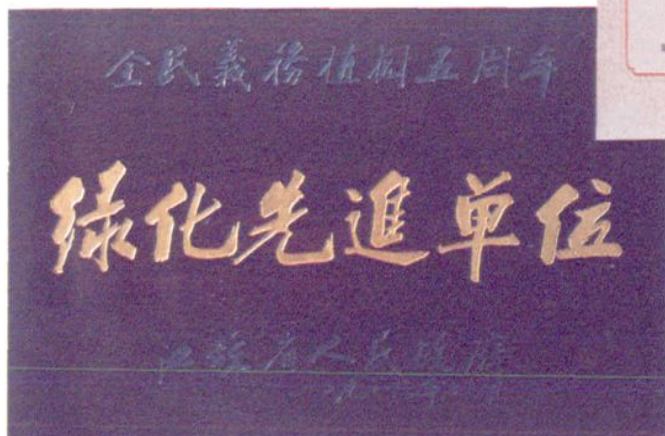 全民義務植樹五周年
绿化先進单位
江蘇省人民政府